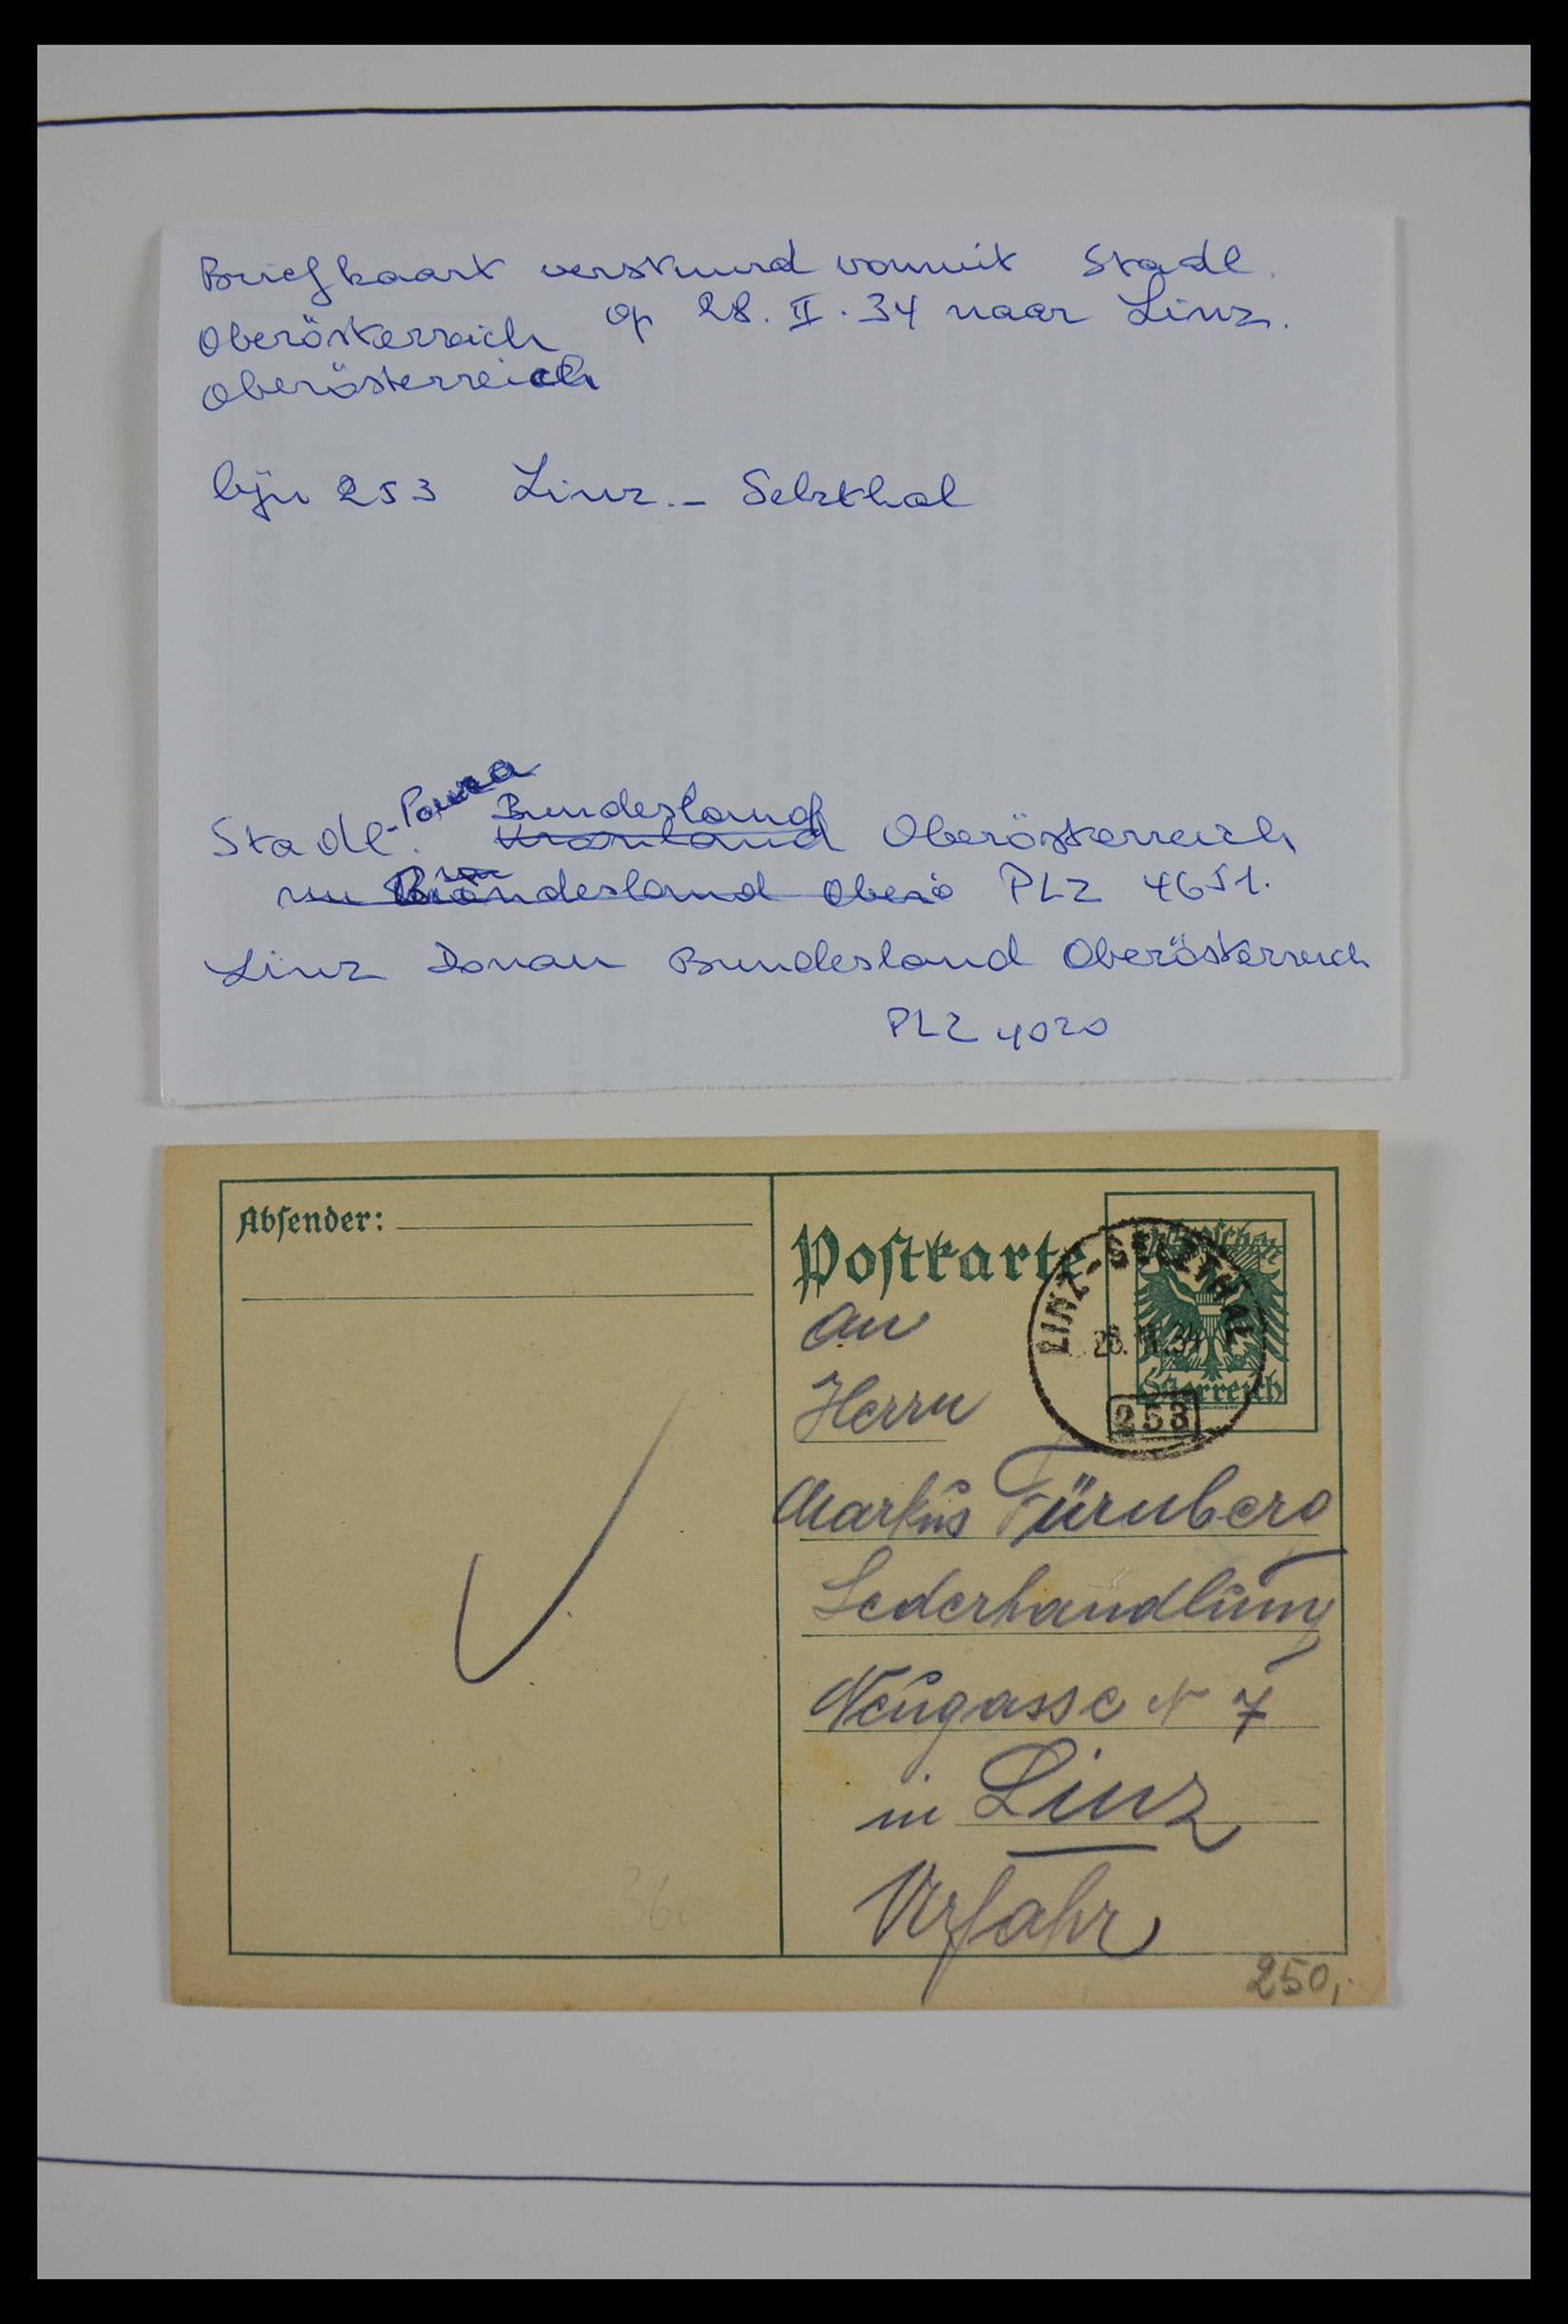 Briefkaart verstuurd vanuit Stadl.
Oberösterreich op 28. II. 34 naar Linz.
Oberösterreich
lijn 253 Linz - Selzthal
Stadl-Paura Bundesland Oberösterreich
PLZ 4651.
Linz Donau Bundesland Oberösterreich
PLZ 4020
Absender:
Postkarte
LINZ-SELZTHAL
34
253
Österreich
An
Herrn
Markus Fürnberg
Lederhandlung
Neugasse N 7
in Linz
Urfahr
360
250,-